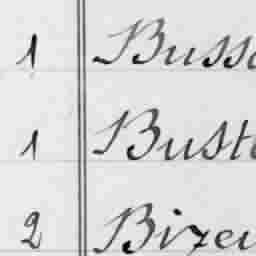 1 Buss
1 Bust
2 Bize